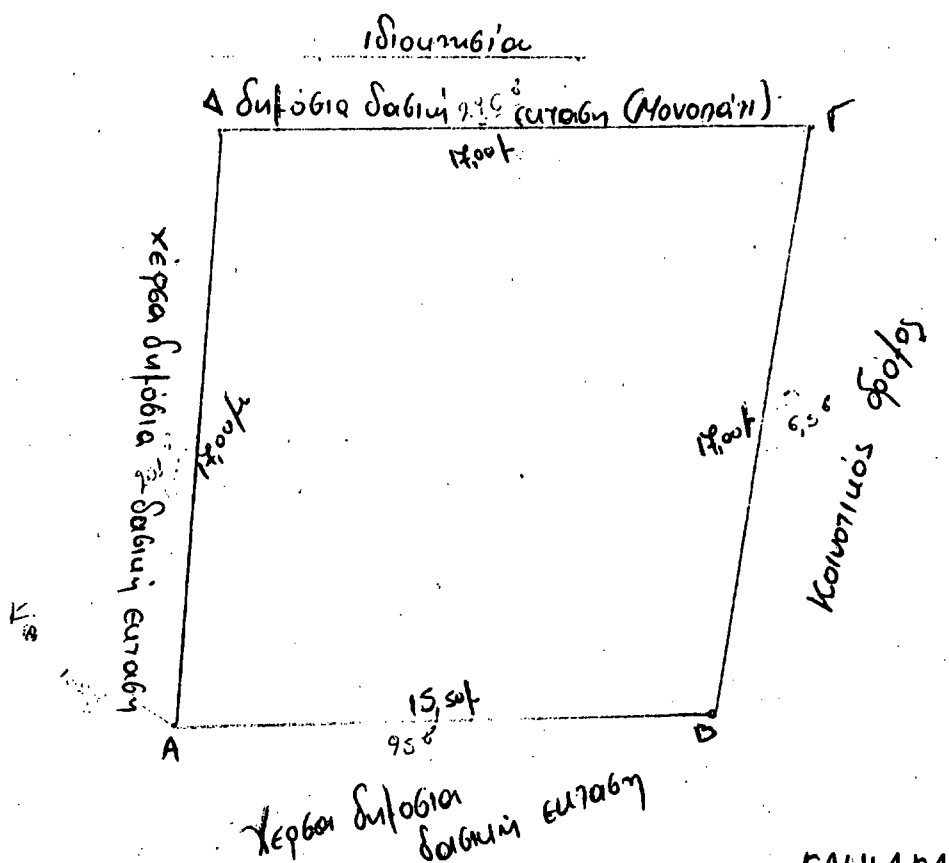 ιδιοκτησία
Δ δημόσια δασική έκταση (Μονοπάτι) Γ
17,00μ
χέρσα δημόσια δασική έκταση
17,00μ
17,00μ
Κοινοτικός δρόμος
15,50μ
Α
Β
Χέρσα δημόσια
δασική έκταση